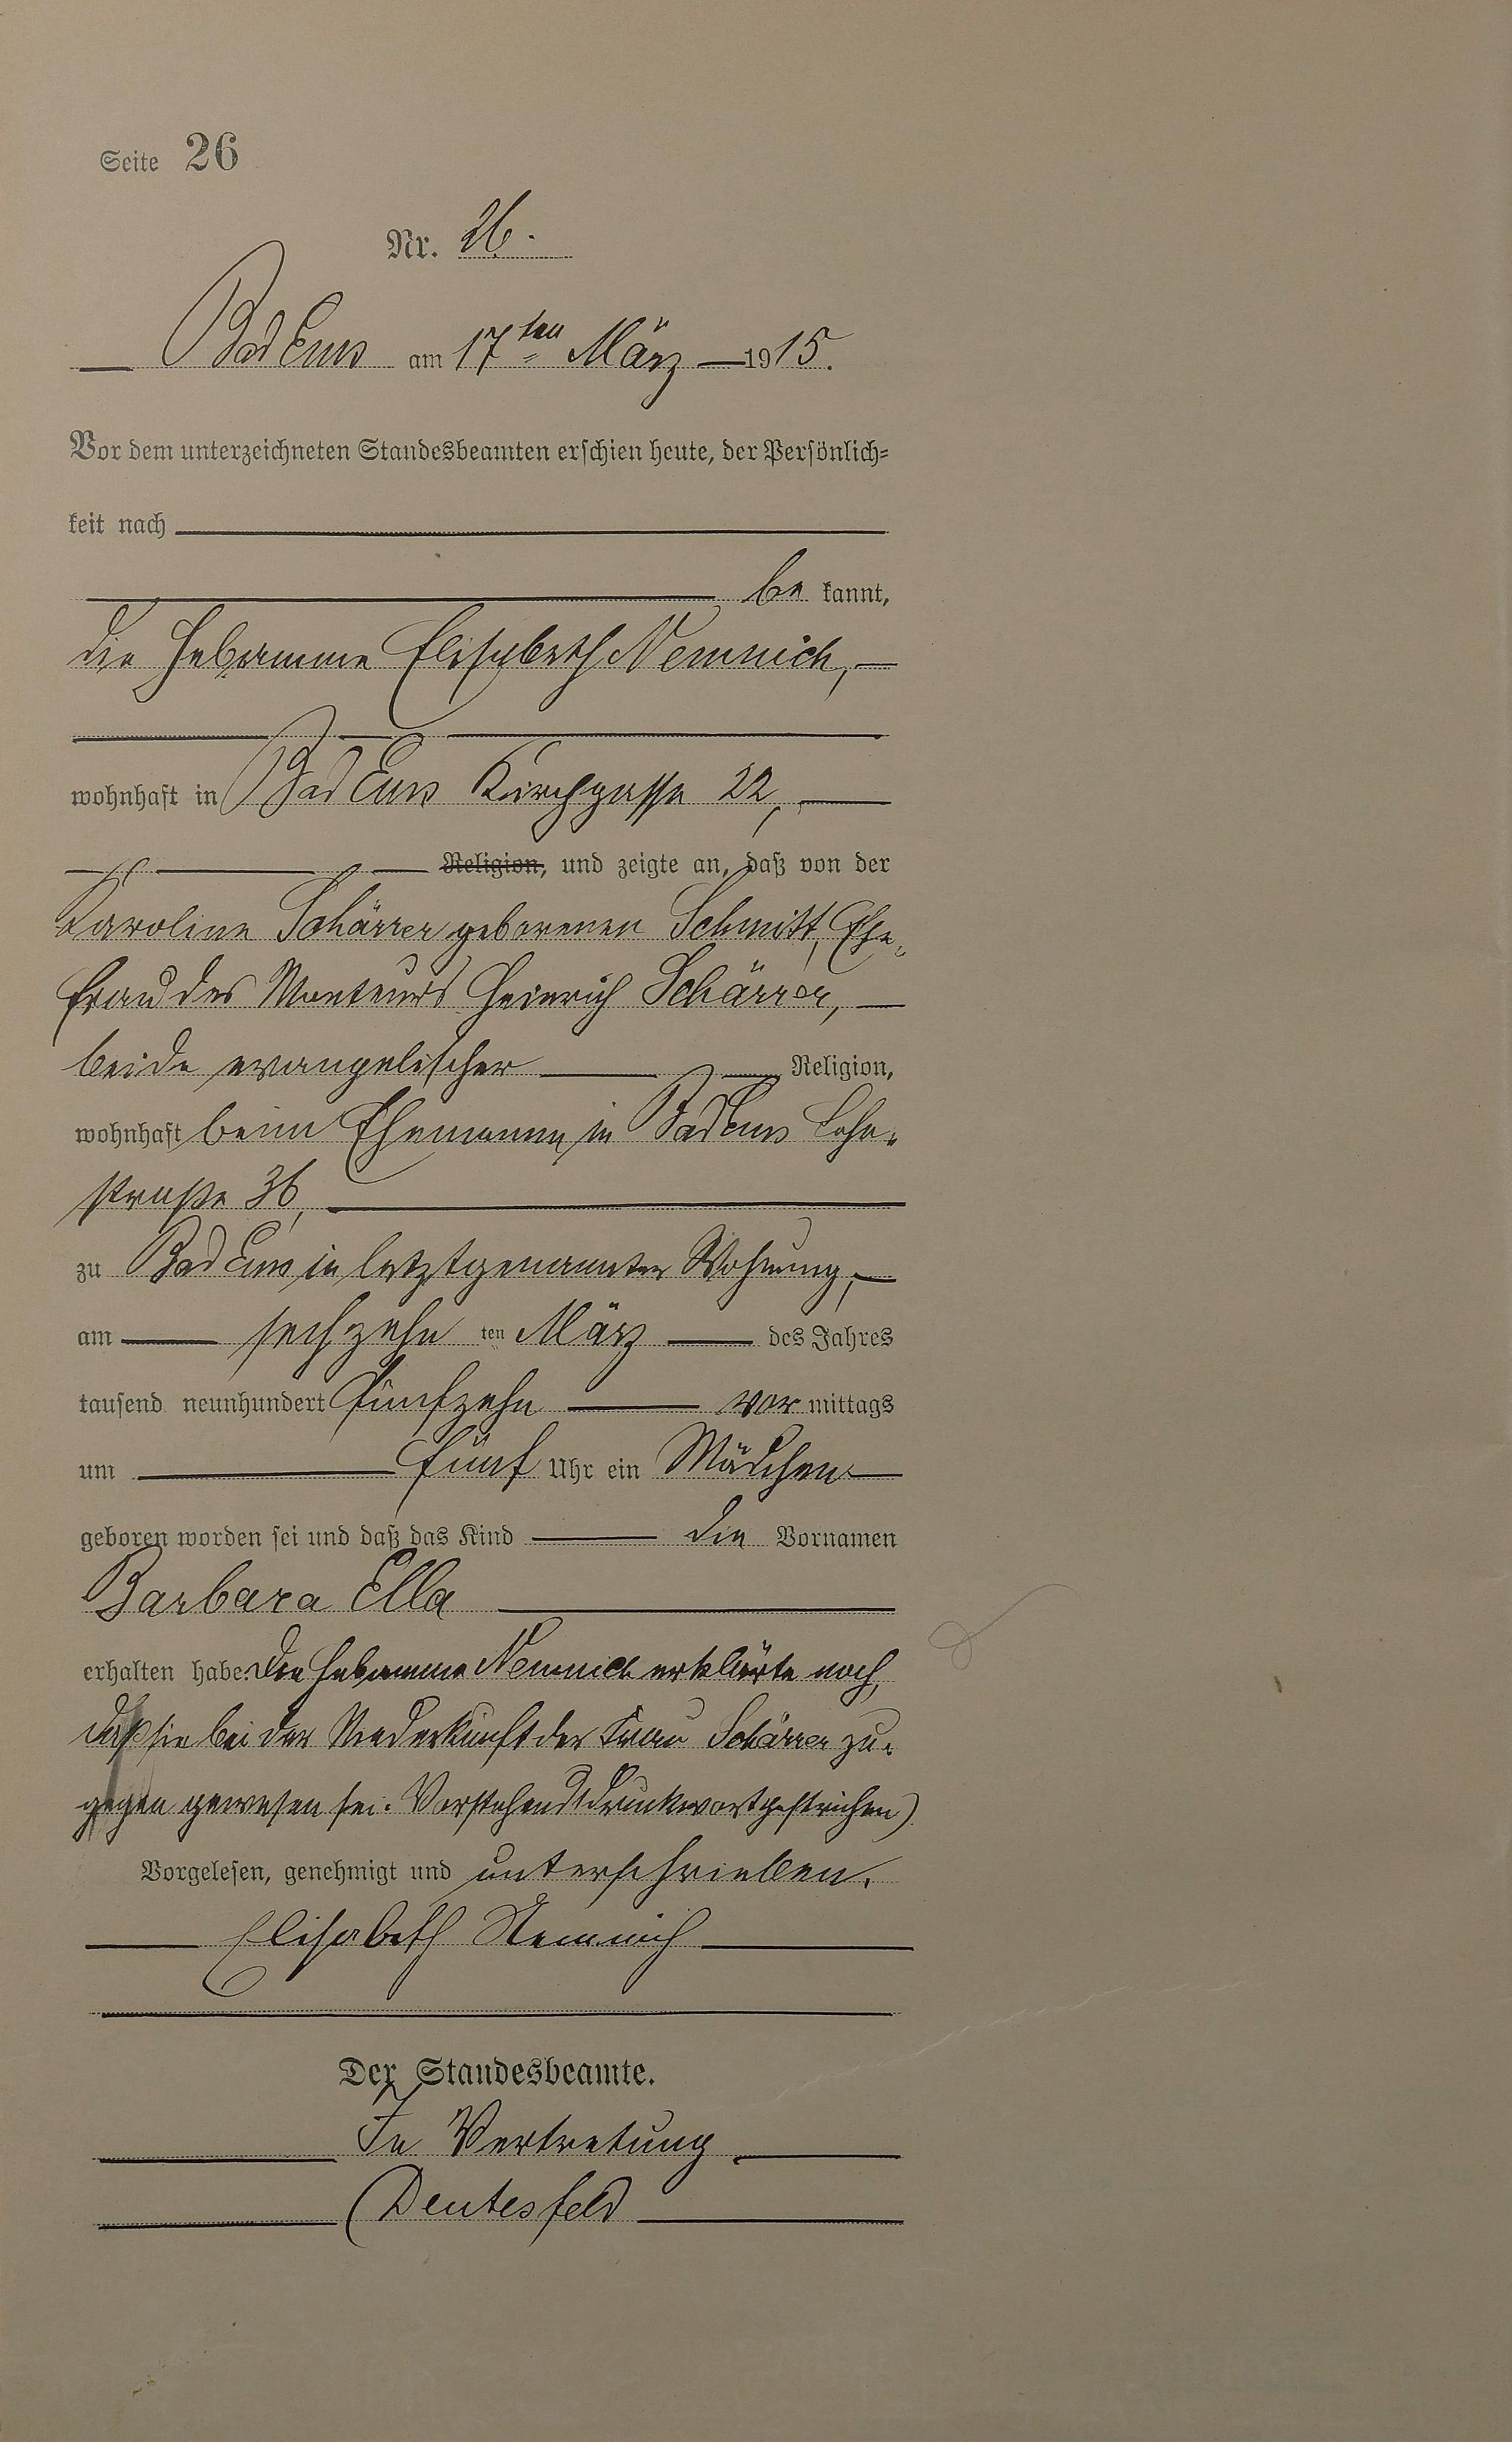 Seite 26
Nr. 26.
Bad Ems am 17ten März 1915.
Vor dem unterzeichneten Standesbeamten erschien heute, der Persönlich-
keit nach
be kannt,
die Hebamme Elisabeth Nemnich,
wohnhaft in Bad Ems Kirchgasse 22,
Religion, und zeigte an, daß von der
Karoline Schärrer geborenen Schmitt, Ehe-
frau des Monteurs Heinrich Schärrer,
beide evangelischer Religion,
wohnhaft beim Ehemann in Bad Ems
straße 36,
zu Bad Ems in letztgenannter Wohnung,
am sechzehn ten März des Jahres
tausend neunhundert fünfzehn vor mittags
um fünf Uhr ein Mädchen
geboren worden sei und daß das Kind die Vornamen
Barbara Ella
erhalten habe. Die Hebamme Nemnich erklärte noch,
daß sie bei der Niederkunft der Frau Schärrer zu-
gegen gewesen sei. Vorstehend 1 Druckwort gestrichen).
Vorgelesen, genehmigt und unterschrieben.
Elisabeth Nemnich
Der Standesbeamte.
In Vertretung
Deutesfeld